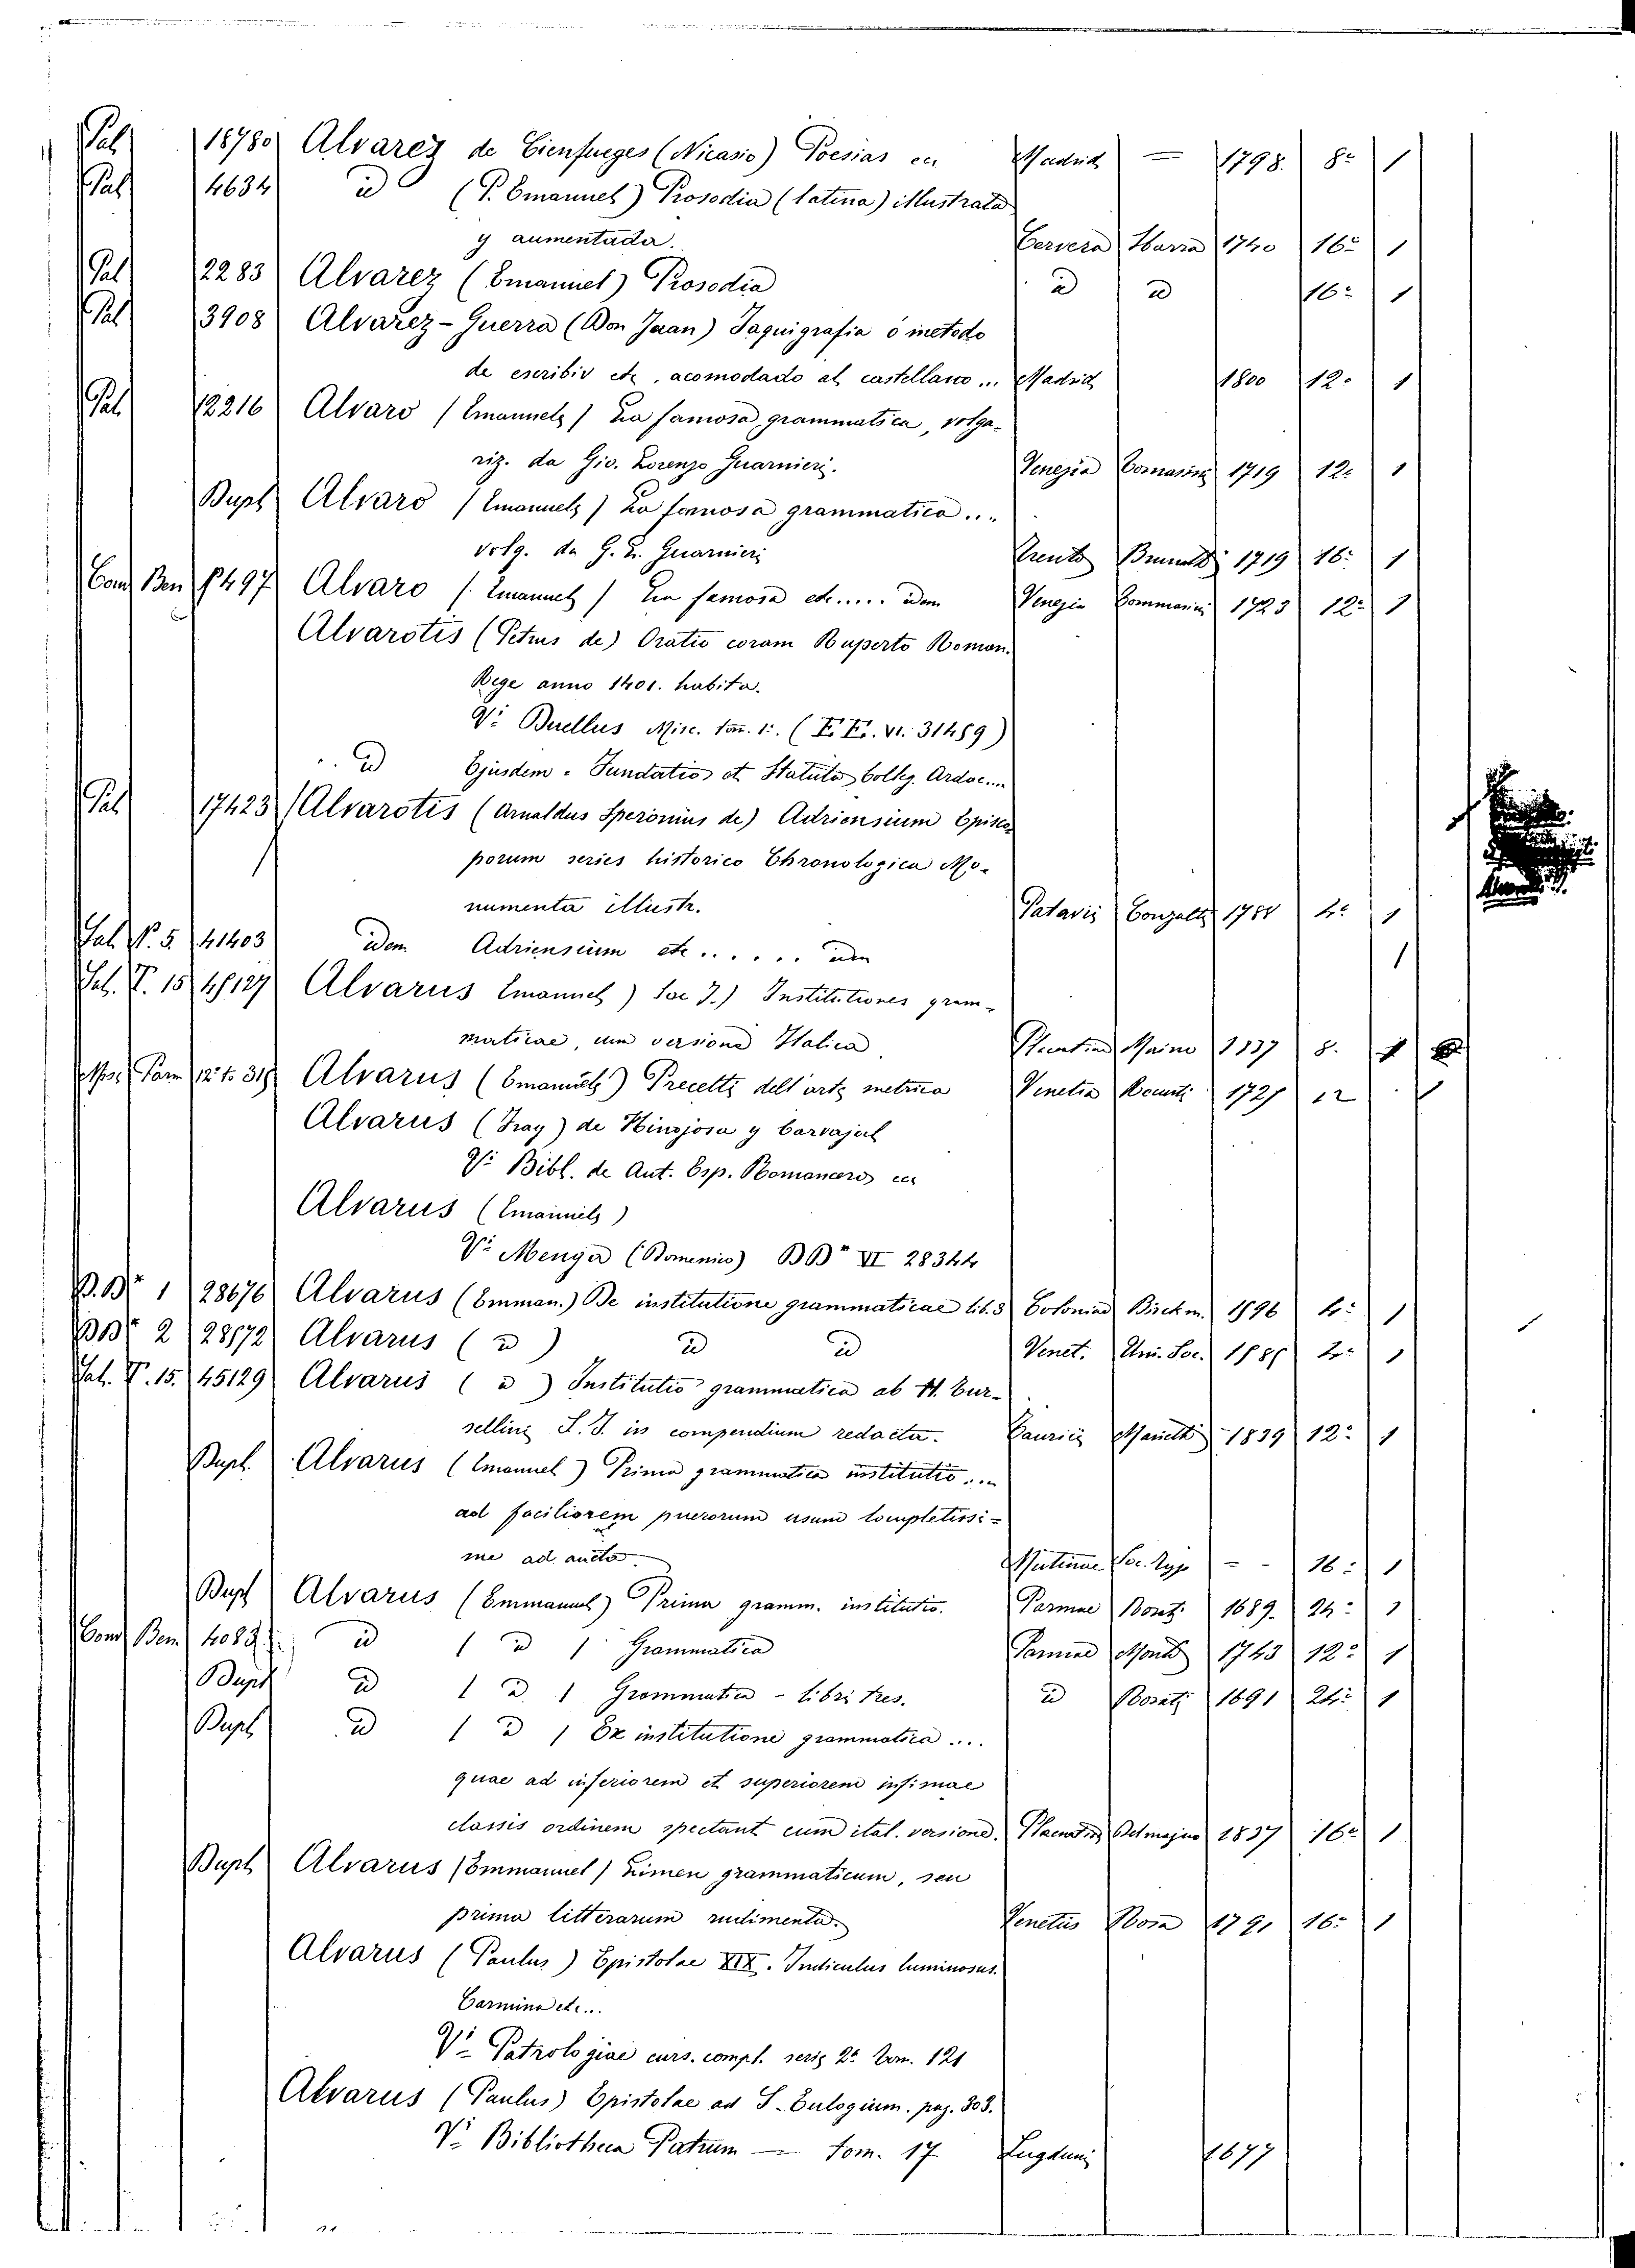 Pal 18780 Alvarez de Cienfueges (Nicasio) Poesias en Madrid — 1798. 8º 1
Pal 4634 id (P. Emanuel) Prosodia (latina) illustrata
y aumentada. Cervera Ibarra 1740 16º 1
Pal 2283 Alvarez (Emanuel) Prosodia id id 16º 1
Pal 3908 Alvarez-Guerra (Don Juan) Taquigrafia ó metodo
de escribir etc, acomodado al castellano... Madrid 1800 12º 1
Pal 12216 Alvaro (Emanuele) La famosa grammatica, volga-
riz. da Gio. Lorenzo Guarnieri. Venezia 1719 12º 1
Dupl Alvaro (Emanuele) La famosa grammatica...
volg. da G. L. Guarnieri Trento 1719 16º 1
Ben 497 Alvaro (Emanuel) La famosa etc..... idem Venezia 12º 1
Alvarotis (Petrus de) Oratio coram Ruperto Roman.
Rege anno 1401. habita.
Vi Buellus Misc. tom. 1º. ( 31489)
id Ejusdem - Fundatio et Statuta Colleg. Ardoc....
Pal 17423 Alvarotis (Arnaldus Speronius de) Adriensium Episco
porum series historico Chronologica Mo-
numenta illustr. Patavii 4º 1
Sal. V. 5. 41403 idem Adriensium etc...... idem 1
Sal. V. 15 Alvarus Emanuel) Soc J.) Institutiones gram-
maticae, cum versione Italica Placentiae Maino 1837 8. 1
Alvarus (Emanuele) Precetti dell'arte metrica Venetia 12
Alvarus (Fray) de Hinojosa y Carvajal
Vi Bibl. de Aut. Esp. Romancero en
Alvarus (Emanuele)
Vi Menga (Domenico) BB VI 28344
1 28676 Alvarus (Emman.) De institutione grammaticae lib. 3 Coloniae Birckm. 1596 4º 1
2 Alvarus (id) id id Venet. Uni. Soc. 1
Sal. V. 15. 45129 Alvarus (id) Institutio grammatica ab H. Tur-
sellini S. J. in compendium redacta. 1839 12º 1
Dupl. Alvarus (Emanuel) Prima grammatica institutio...
ad faciliorem puerorum usum completissi-
me ad. aucta. Mutinae Soc. Typ - - 16º 1
Dupl Alvarus (Emmanuel) Prima gramm. institutio. Parmae 1689. 24º 1
Ben id (id) Grammatica Parmae Monti 1743 12º 1
Dupl id (id) Grammatica - libri tres. id Rosati 1691 24º 1
Dupl id (id) Ex institutione grammatica....
quae ad inferiorem et superiorem infimae
classis ordinem spectant cum ital. versione. Placentiae Delmajno 1837 16º 1
Dupl Alvarus (Emmanuel) Limen grammaticum, seu
prima litterarum rudimenta. Venetiis Rosa 1791 16º 1
Alvarus (Paulus) Epistolae XIX. Indiculus luminosus.
Carmina etc...
Vi Patrologiae curs. compl. serie 2ª tom. 121
Alvarus (Paulus) Epistolae ad S. Eulogium. pag. 303.
Vi Bibliotheca Patrum — tom. 17 Lugduni 1677